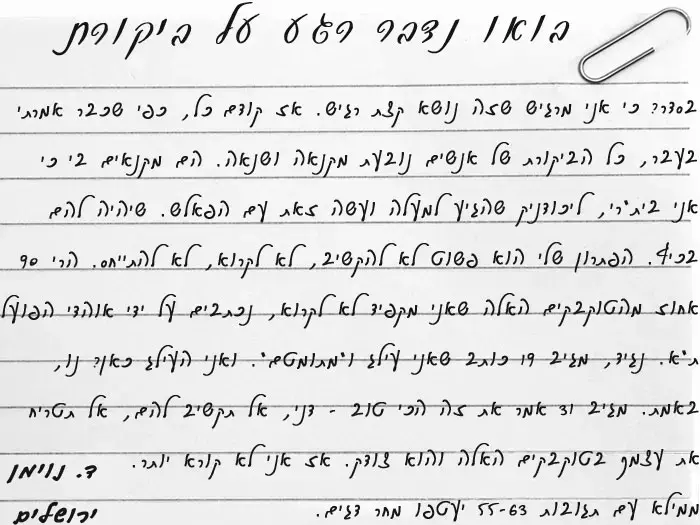 בואו נדבר רגע על ביקורת
בסדר? כי אני מרגיש שזה נושא קצת רגיש. אז קודם כל, כפי שכבר אמרתי
בעבר, כל הביקורת של אנשים נובעת מקנאה ושנאה. הם מקנאים בי כי
אני בית"רי, ליכודניק שהגיע למעלה ועשה זאת עם הפאלש. שיהיה להם
בכיף. הפתרון שלי הוא פשוט לא להקשיב, לא לקרוא, לא להתייחס. הרי 90
אחוז מהטוקבקים האלה שאני מקפיד לא לקרוא, נכתבים על ידי אוהדי הפועל
ת"א. נגיד, מגיב 19 כותב שאני עילג ו"מתומטם". ואני העילג כאן? נו,
באמת. מגיב 13 אמר את זה הכי טוב - דני, אל תקשיב להם, אל תטריח
את עצמך בטוקבקים האלה והוא צודק. אז אני לא קורא יותר.
ממילא עם תגובות 55-63 יעטפו מחר דגים.
ד. נוימן
ירושלים